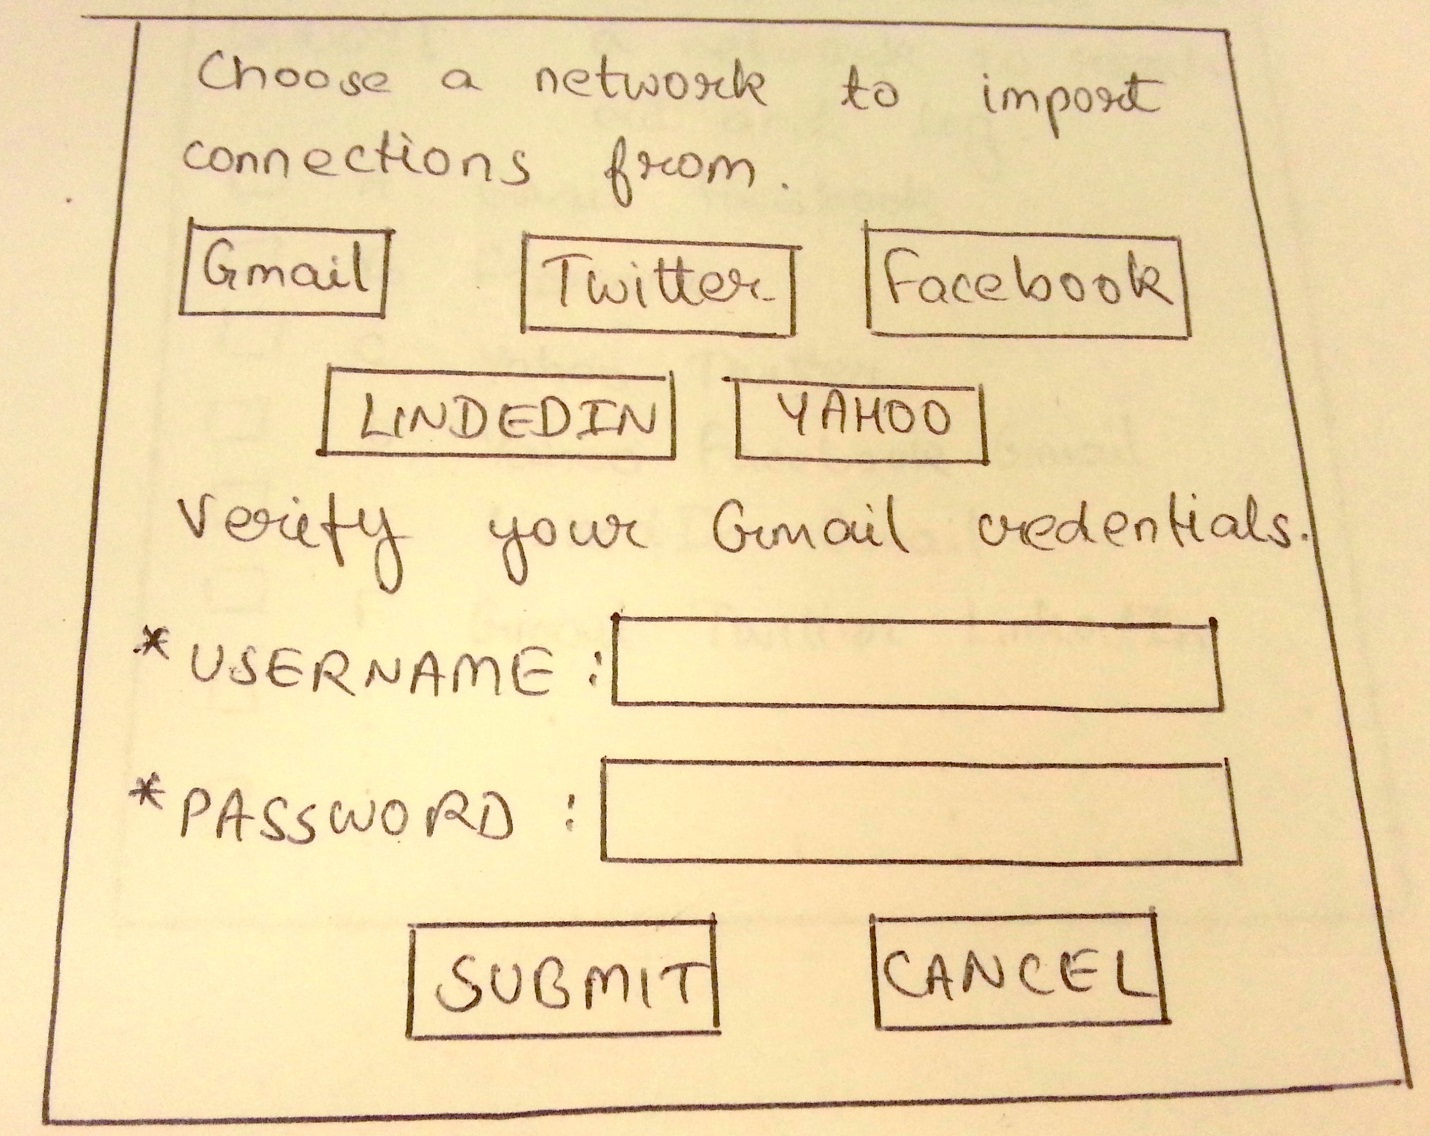 Choose a network to import
connections from.
Gmail Twitter Facebook
LINDEDIN YAHOO
Verify your Gmail credentials.
*USERNAME :
*PASSWORD :
SUBMIT CANCEL